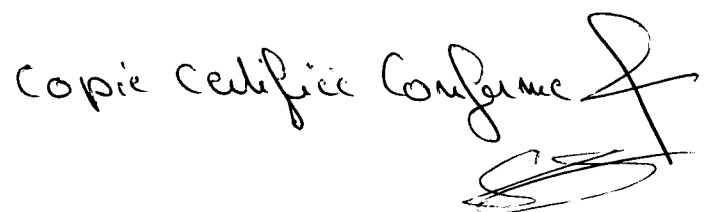 Copie Certifiée Conforme